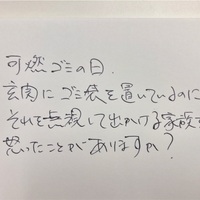 可燃ゴミの日.
玄関にゴミ袋を置いているのに
それを無視して出かける家族
怒ったことがありますか?